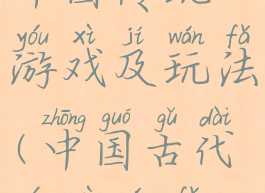 yóu xì jí wán fǎ
游戏及玩法
zhōng guó gǔ dài
(中国古代